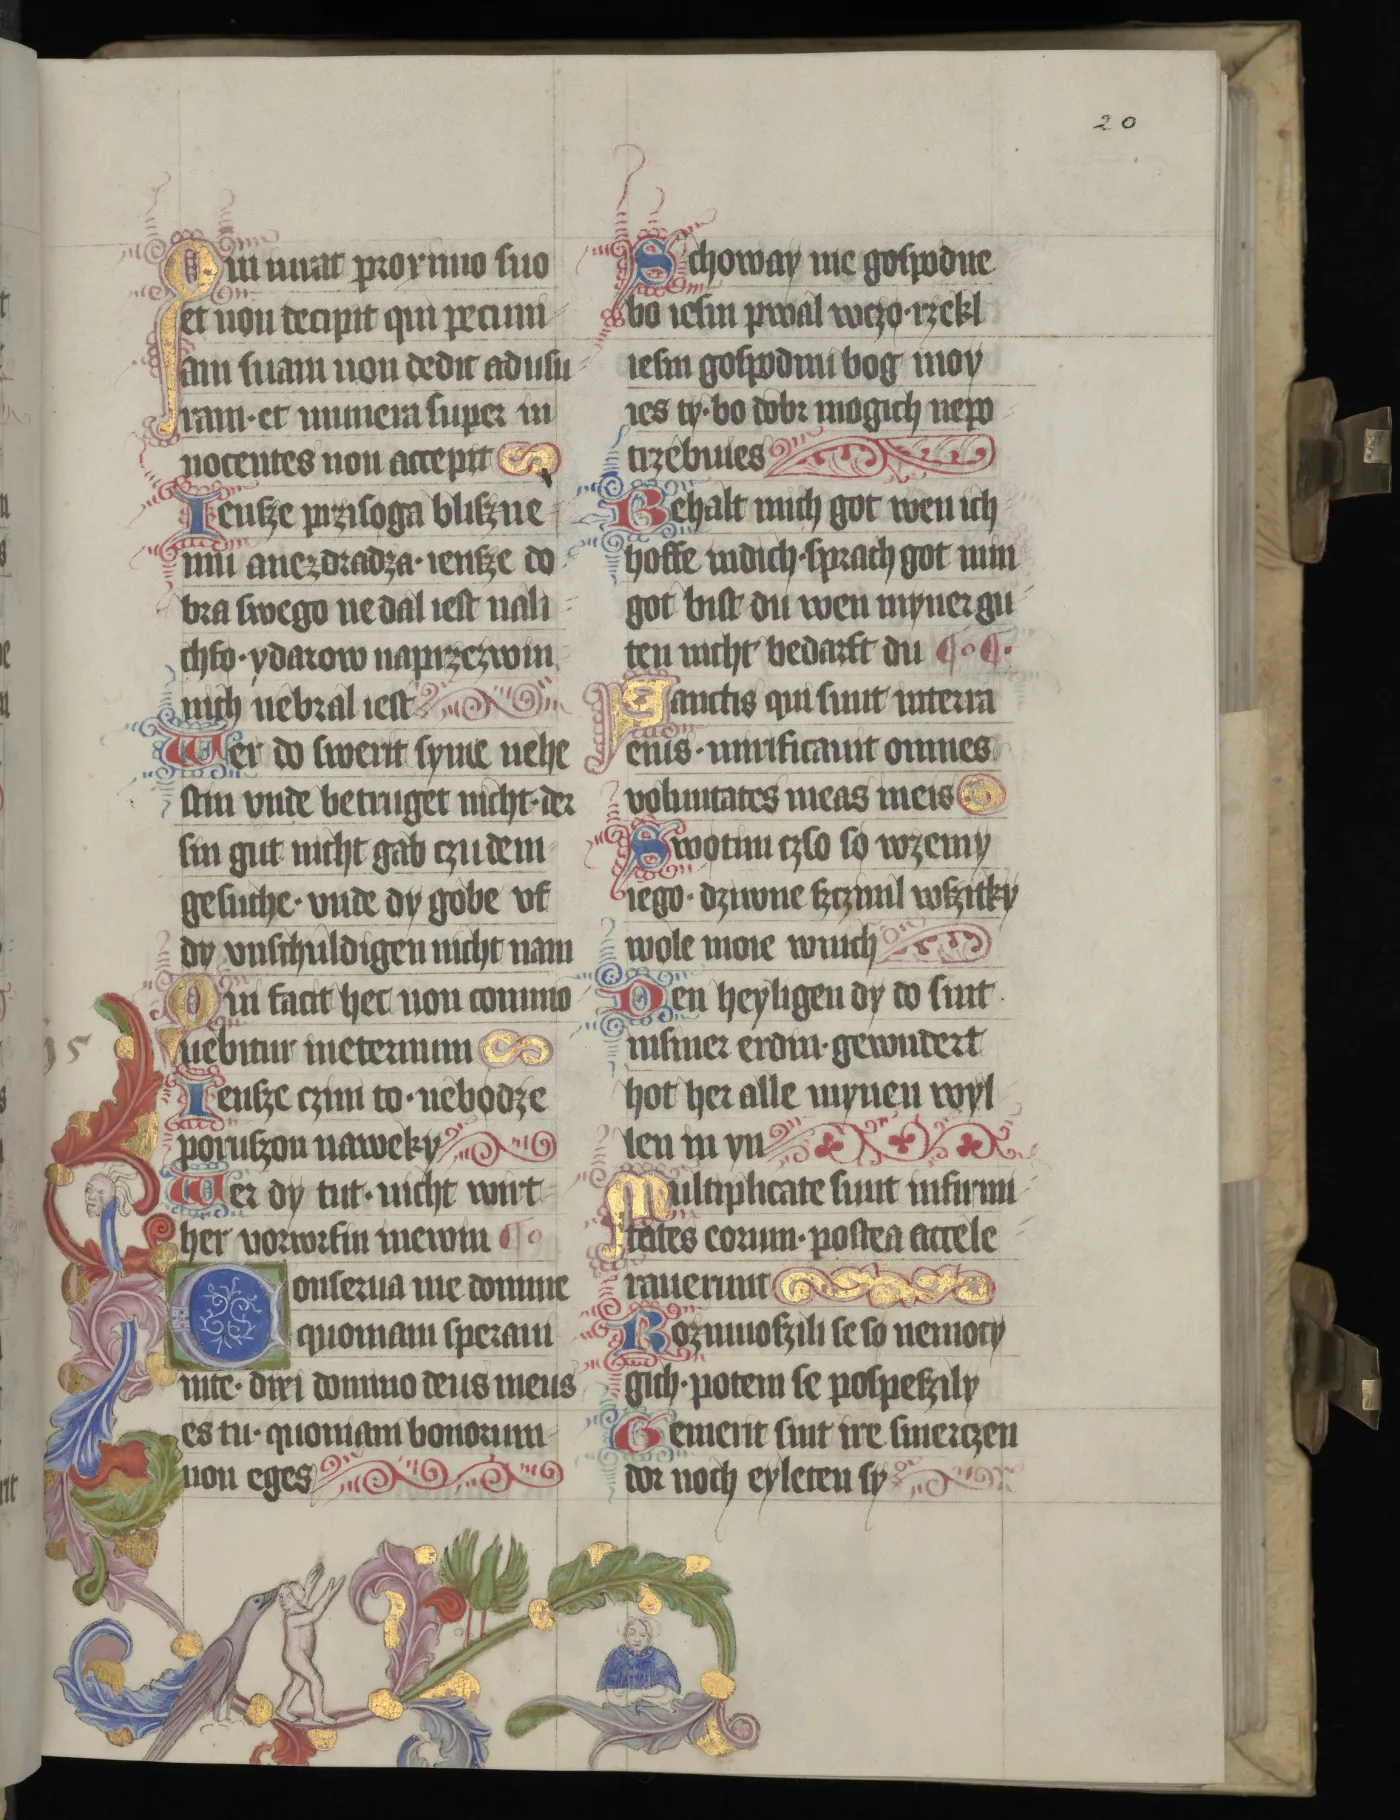 20
Qui iurat proximo suo
et non decipit qui pecuni
am suam non dedit ad usu
ram · et munera super in
nocentes non accepit
Iensze przisoga bliszne
mu anezdradza · iensze do
bra swego ne dal iest na li
chfo · y darow naprzezwin
nich nebral iest
Wer do swerit syme nehe
stin vnde betruget nicht · der
sin gut nicht gab czu dem
gesuche · vnde dy gobe vf
dy vnschuldigen nicht nam
Qui facit hec non commo
uebitur in eternum
Iensze czini to · nebodze
poruszon naweky
Wer dy tut · nicht wirt
her vorworfin inewin
Conserua me domine
quoniam speraui
inte · dixi domino deus meus
es tu · quoniam bonorum
non eges
Schoway me gospodne
bo iesm pwal wczo · rzekl
iesm gospodnu bog moy
ies ty · bo dobr mogich nepo
trzebuies
Behalt mich got wen ich
hoffe indich · sprach got min
got bist du wen myner gu
ten nicht bedarft du
Sanctis qui sunt interra
eius · mirificauit omnes
voluntates meas in eis
Swotim czso so wzemy
iego · dziwne sczinil wszitky
wole moie wnich
Den heyligen dy do sint
insiner erdin · gewndert
hot her alle mynen wyl
len in yn
Multiplicate sunt infirmi
tates eorum · postea accele
rauerunt
Rozmnoszili se so nemocy
gich · potem se pospeszily
Gemerit sint ire smerczen
dor noch eyleten sy